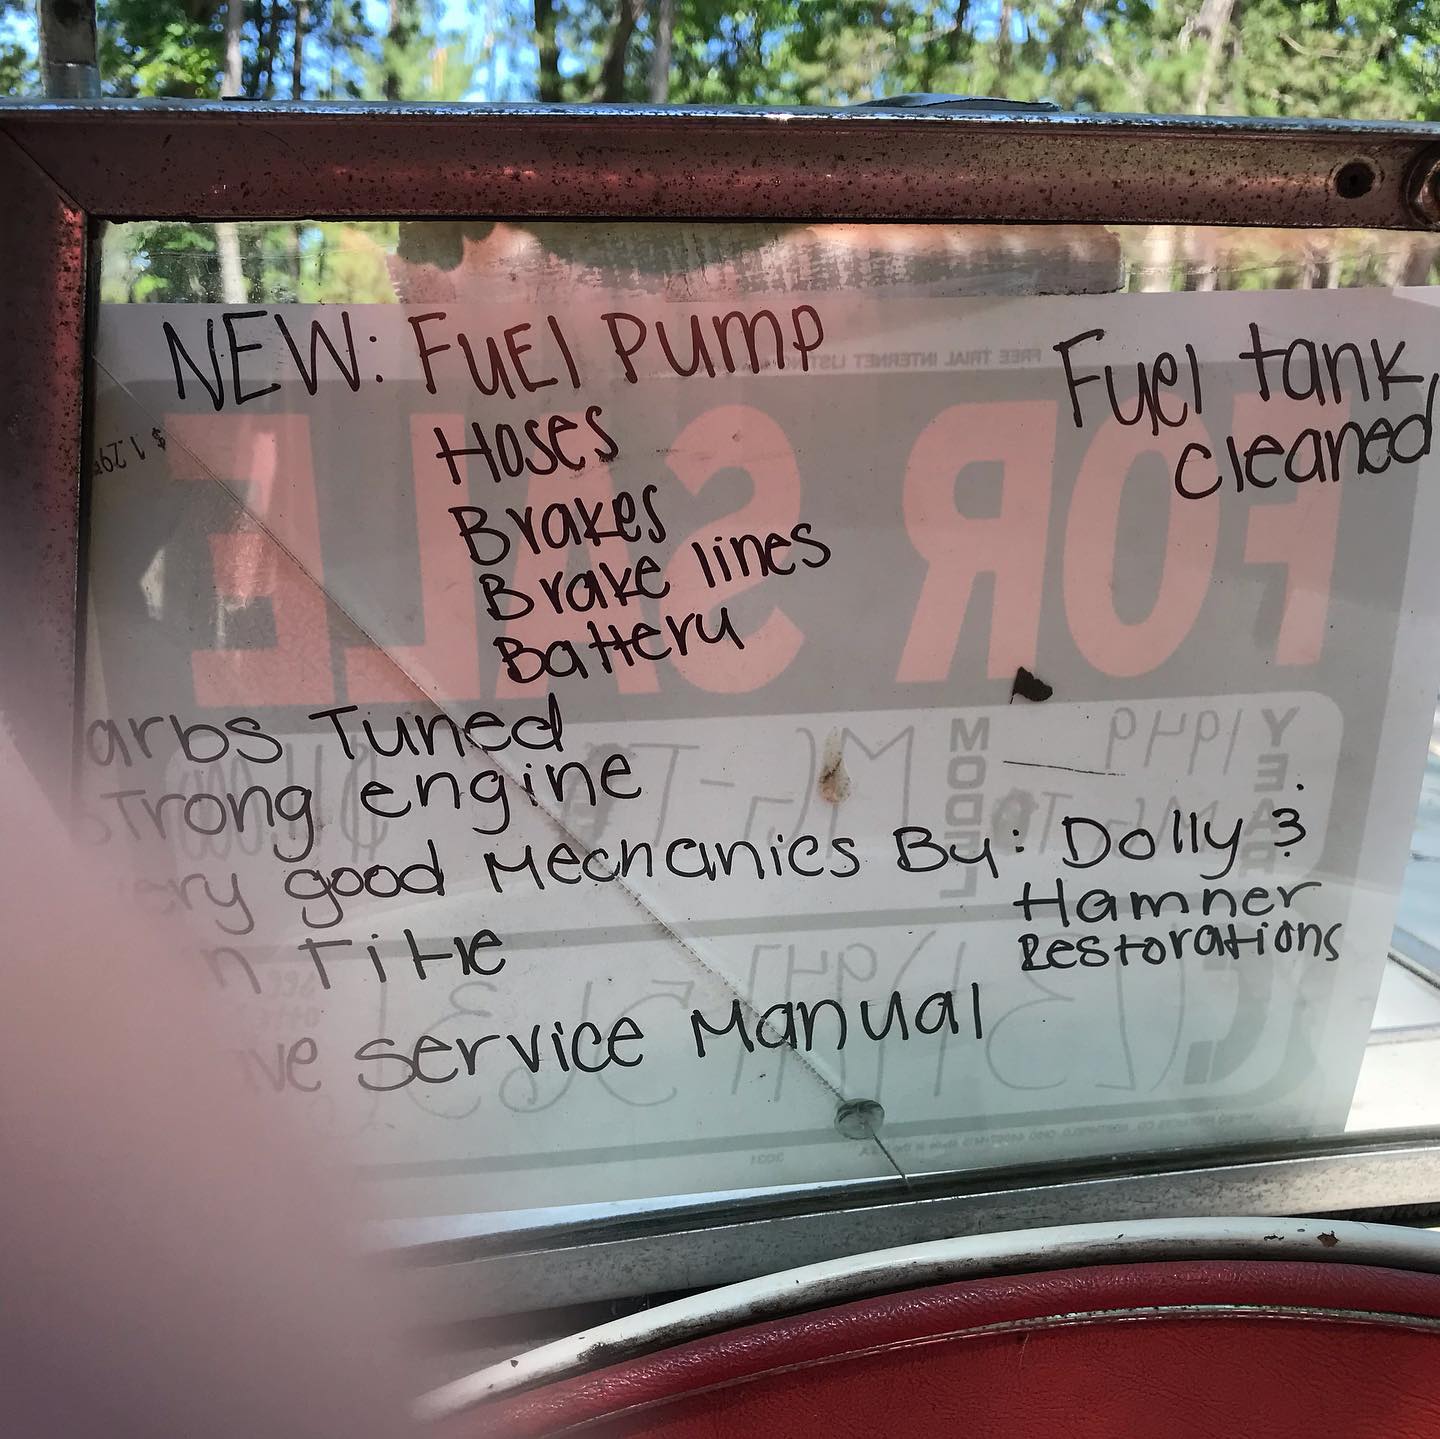 NEW: FUEl PUMP
Hoses
Brakes
Brake lines
Battery
Fuel tank
cleaned
arbs Tuned
Strong engine
ery good Mechanics By: Dolly &
Hamner
Restorations
n Title
ve Service Manual
FOR SALE
FREE TRIAL INTERNET
$1.29
YEAR 1949
MODEL MG-TC